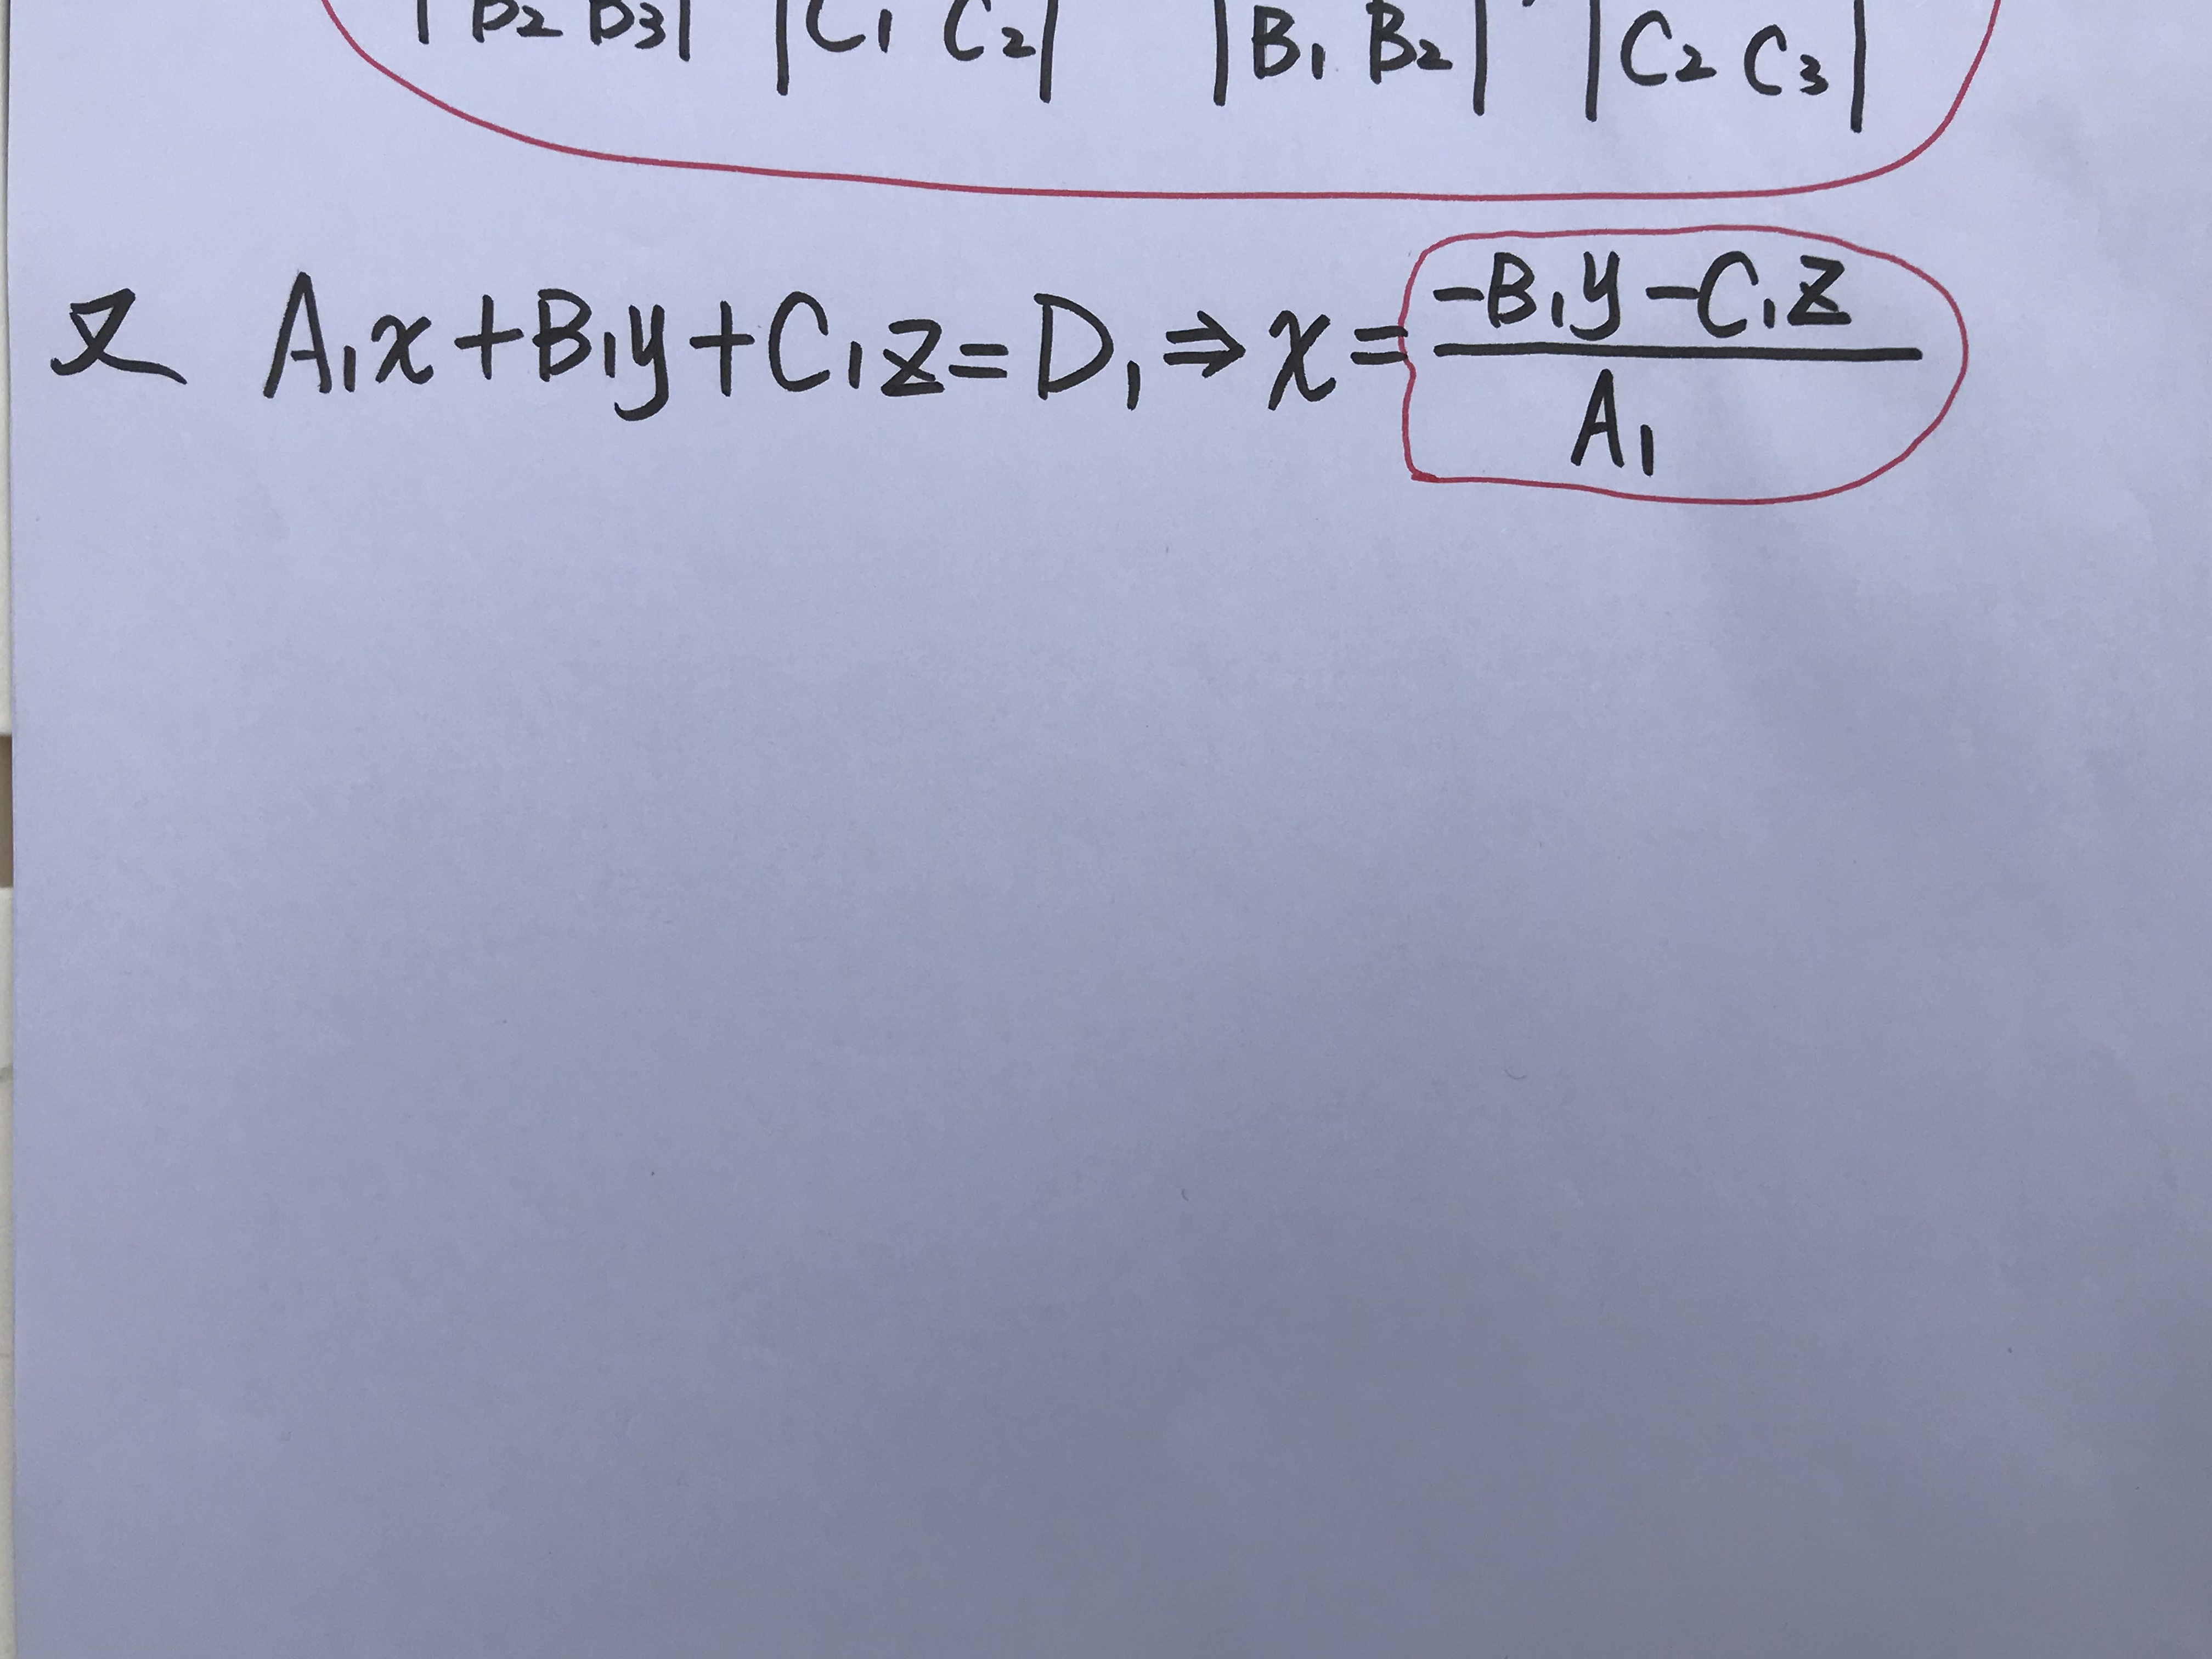 |B₂ B₃| |C₁ C₂| |B₁ B₂| |C₂ C₃|
又 A₁x+B₁y+C₁z=D₁⇒x=(-B₁y-C₁z)/A₁